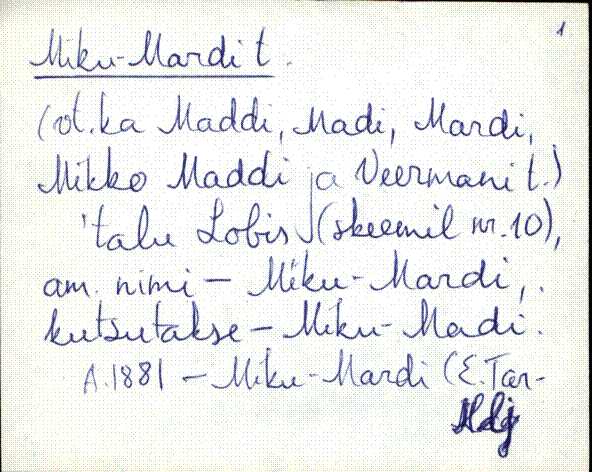 1
Miku-Mardi t.
(vt. ka Maddi, Madi, Mardi,
Mikko Maddi ja Veermani t.)
'talu Lobis (skeemil nr. 10),
am. nimi – Miku-Mardi,
kutsutakse – Miku-Madi.
A. 1881 – Miku-Mardi (E. Tar-
Hdj